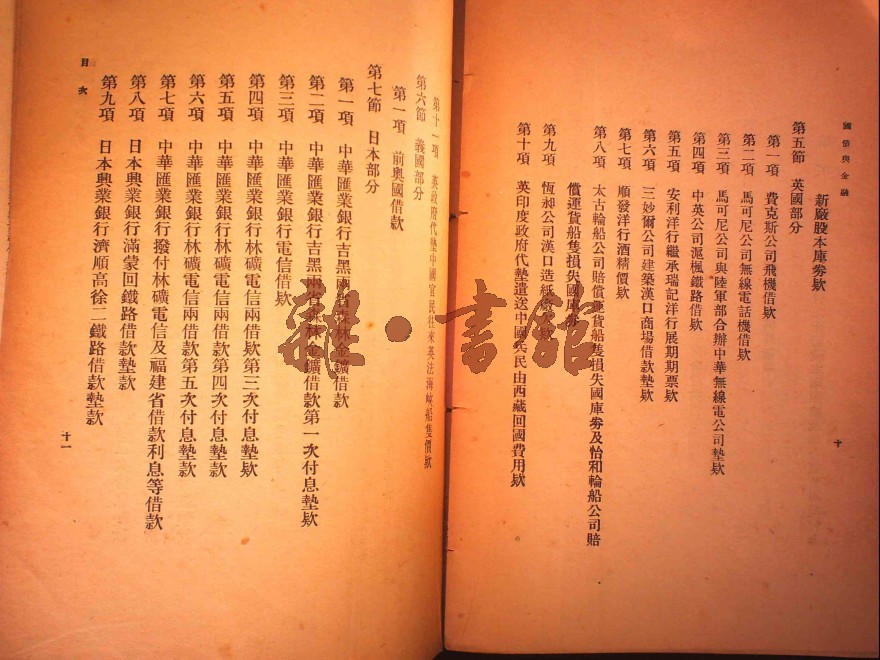 國債與金融
十
新廠股本庫券欵
第五節 英國部分
第一項 費克斯公司飛機借欵
第二項 馬可尼公司無線電話機借欵
第三項 馬可尼公司與陸軍部合辦中華無線電公司墊欵
第四項 中英公司滬楓鐵路借欵
第五項 安利洋行繼承瑞記洋行展期期票欵
第六項 三妙爾公司建築漢口商場借款墊欵
第七項 順發洋行酒精價欵
第八項 太古輪船公司賠償運貨船隻損失國庫券及怡和輪船公司賠
償運貨船隻損失國庫券
第九項 恆昶公司漢口造紙 欵
第十項 英印度政府代墊遣送中國兵民由西藏回國費用欵
第十一項 英政府代墊中國官民往來英法海峽船隻價欵
第六節 義國部分
第一項 前奧國借款
第七節 日本部分
第一項 中華匯業銀行吉黑兩省森林金鑛借款
第二項 中華匯業銀行吉黑兩省森林金鑛借款第一次付息墊欵
第三項 中華匯業銀行電信借欵
第四項 中華匯業銀行林礦電信兩借欵第三次付息墊欵
第五項 中華匯業銀行林礦電信兩借款第四次付息墊款
第六項 中華匯業銀行林礦電信兩借款第五次付息墊款
第七項 中華匯業銀行撥付林礦電信及福建省借款利息等借款
第八項 日本興業銀行滿蒙回鐵路借款墊款
第九項 日本興業銀行濟順高徐二鐵路借款墊款
目次
十一
雜·書館